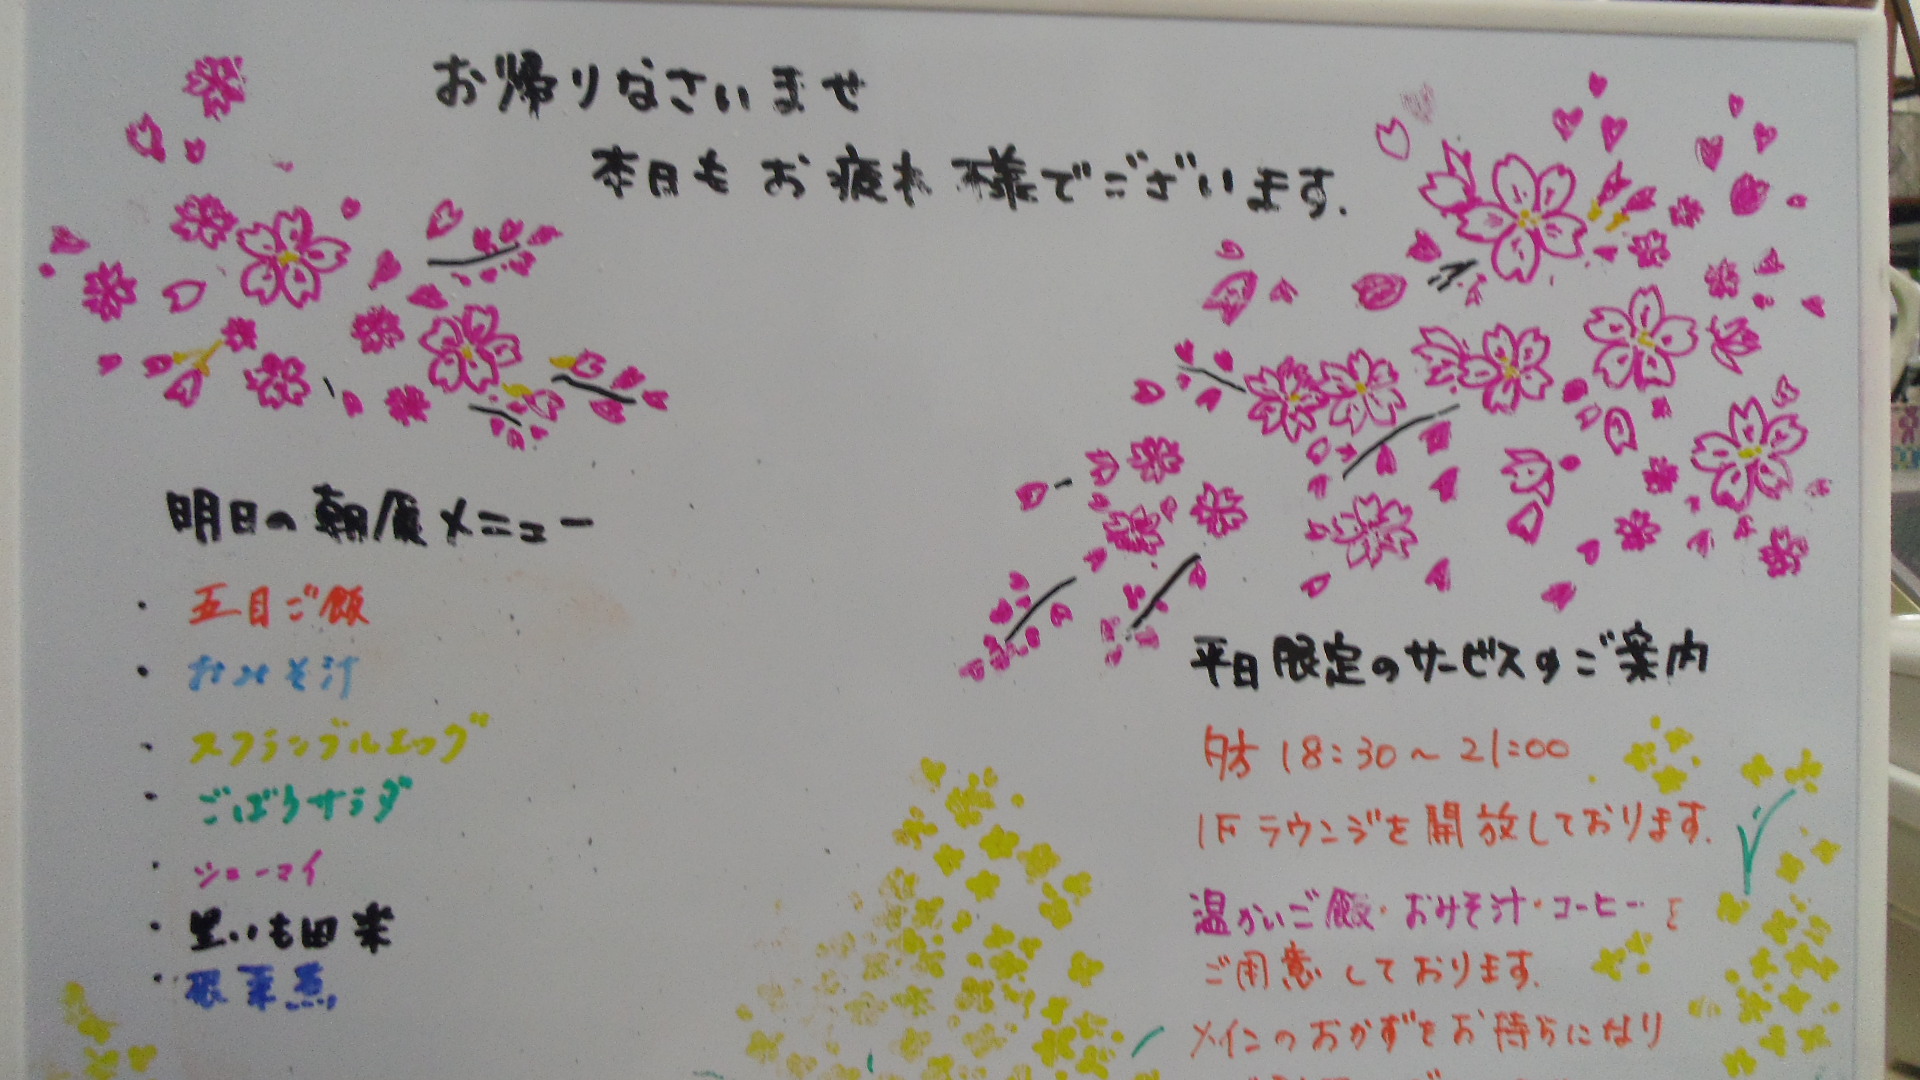 お帰りなさいませ
本日もお疲れ様でございます.
明日の朝食メニュー
・五目ご飯
・おみそ汁
・スクランブルエッグ
・ごぼうサラダ
・シューマイ
・里いも田楽
・根菜煮
平日限定のサービスのご案内
夕方 18:30～21:00
1Fラウンジを開放しております.
温かいご飯・おみそ汁・コーヒーを
ご用意しております.
メインのおかずをお持ちになり